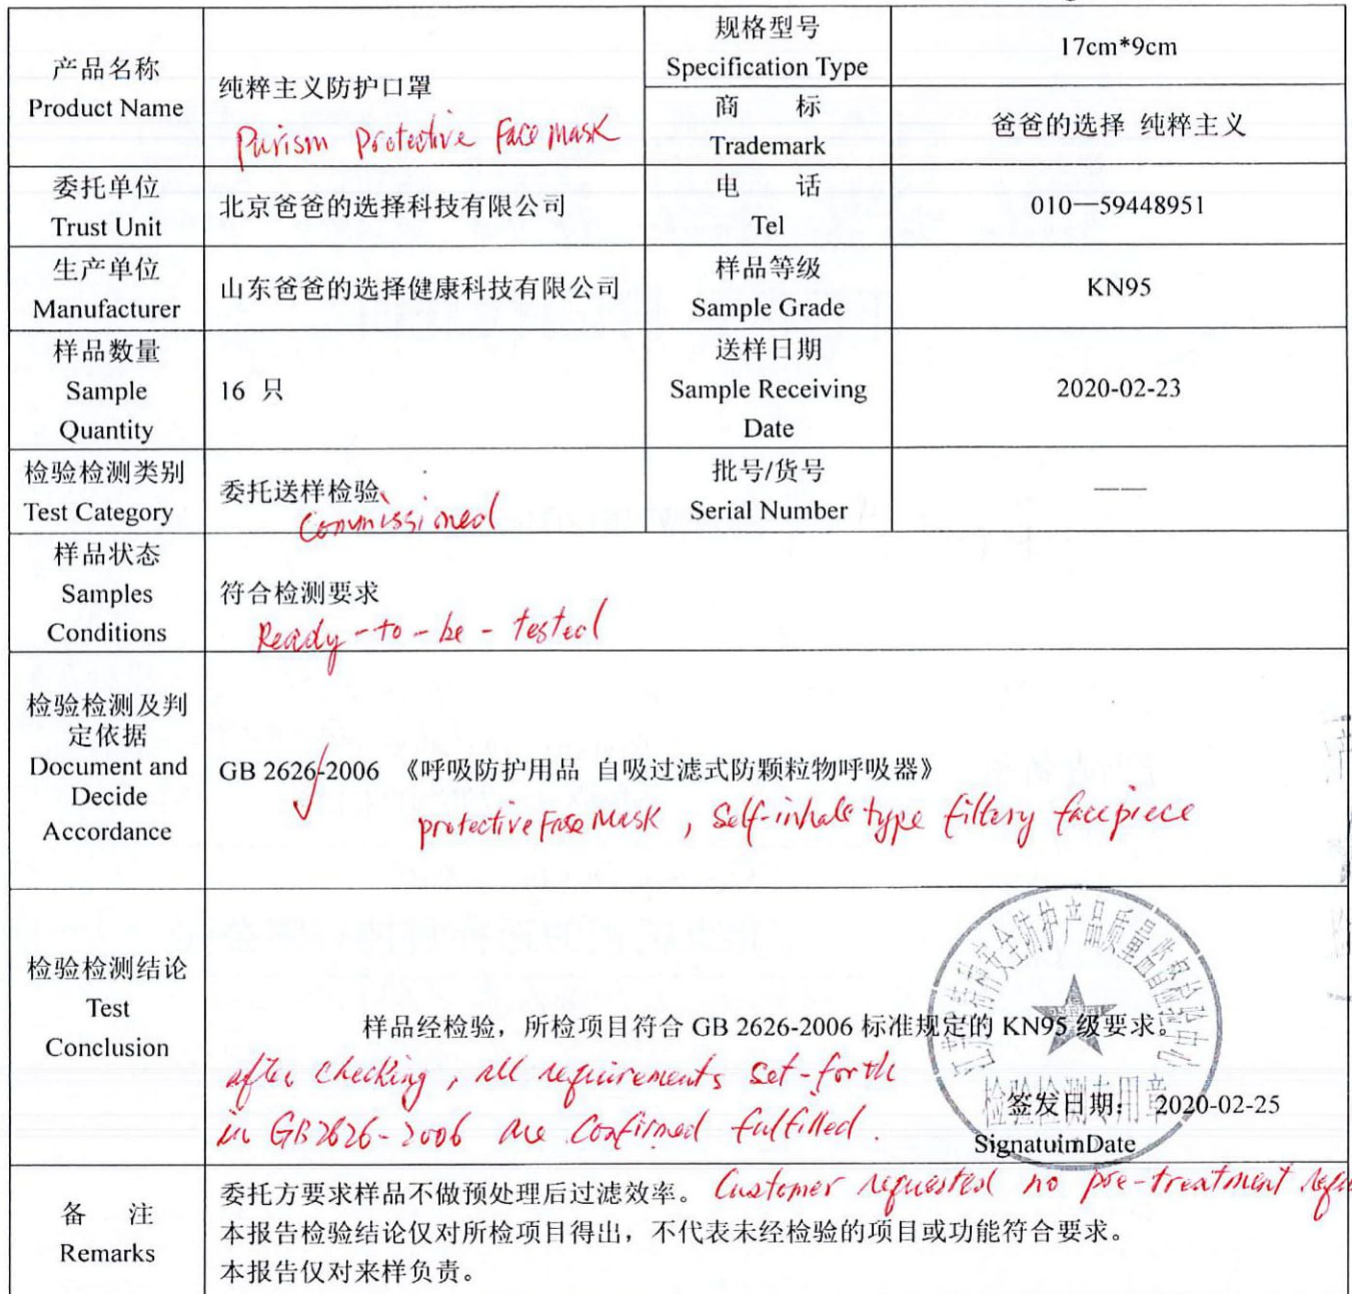 产品名称
Product Name
纯粹主义防护口罩
Purism Protective Face Mask
规格型号
Specification Type
17cm*9cm
商 标
Trademark
爸爸的选择 纯粹主义
委托单位
Trust Unit
北京爸爸的选择科技有限公司
电 话
Tel
010—59448951
生产单位
Manufacturer
山东爸爸的选择健康科技有限公司
样品等级
Sample Grade
KN95
样品数量
Sample
Quantity
16 只
送样日期
Sample Receiving
Date
2020-02-23
检验检测类别
Test Category
委托送样检验
Commissioned
批号/货号
Serial Number
——
样品状态
Samples
Conditions
符合检测要求
Ready-to-be-tested
检验检测及判
定依据
Document and
Decide
Accordance
GB 2626-2006 《呼吸防护用品 自吸过滤式防颗粒物呼吸器》
protective Face Mask, Self-inhale type filtery facepiece
检验检测结论
Test
Conclusion
样品经检验，所检项目符合 GB 2626-2006 标准规定的 KN95 级要求。
after checking, all requirements set-forth
in GB2626-2006 are confirmed fulfilled.
江苏省特种安全防护产品质量监督检验中心
检验检测专用章
签发日期： 2020-02-25
SignatuimDate
备 注
Remarks
委托方要求样品不做预处理后过滤效率。 Customer requested no pre-treatment
本报告检验结论仅对所检项目得出，不代表未经检验的项目或功能符合要求。
本报告仅对来样负责。